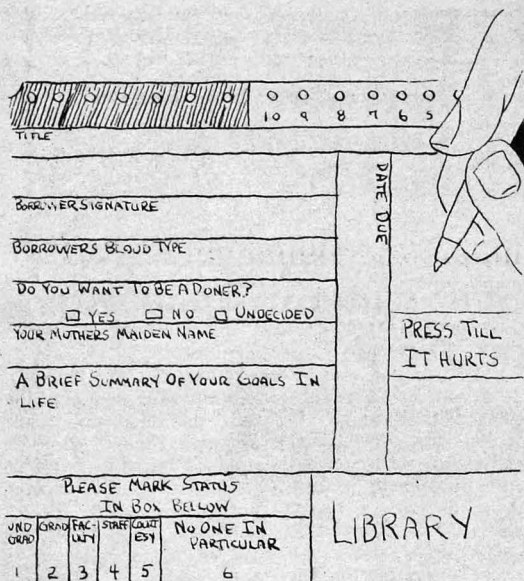 10 9 8 7 6 5
TITLE
DATE DUE
BORROWER SIGNATURE
BORROWERS BLOUD TYPE
DO YOU WANT TO BE A DONER?
YES NO UNDECIDED
YOUR MOTHERS MAIDEN NAME
A BRIEF SUMMARY OF YOUR GOALS IN
LIFE
PRESS TILL
IT HURTS
PLEASE MARK STATUS
IN BOX BELLOW
UND
GRAD
GRAD
FAC-
ULTY
STAFF
COURT
ESY
NO ONE IN
PARTICULAR
1 2 3 4 5 6
LIBRARY